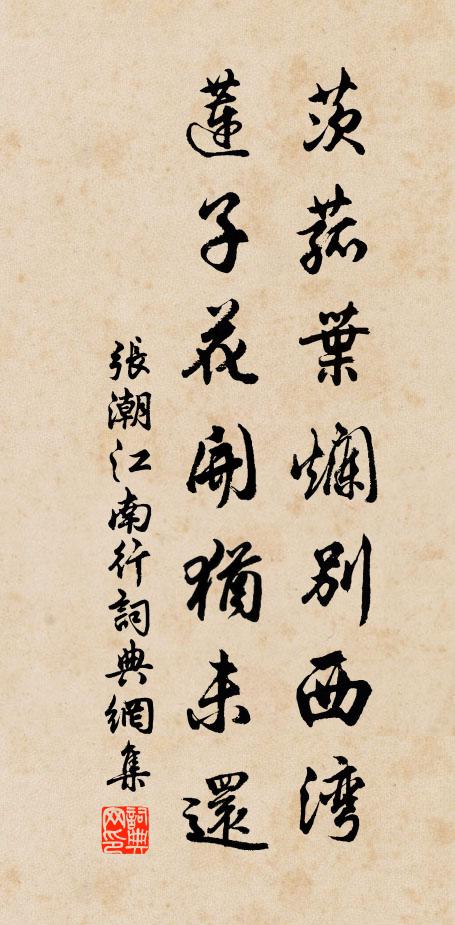 茨菰葉爛別西灣
蓮子花開猶未還
張潮江南行詞典網集
詞典网印